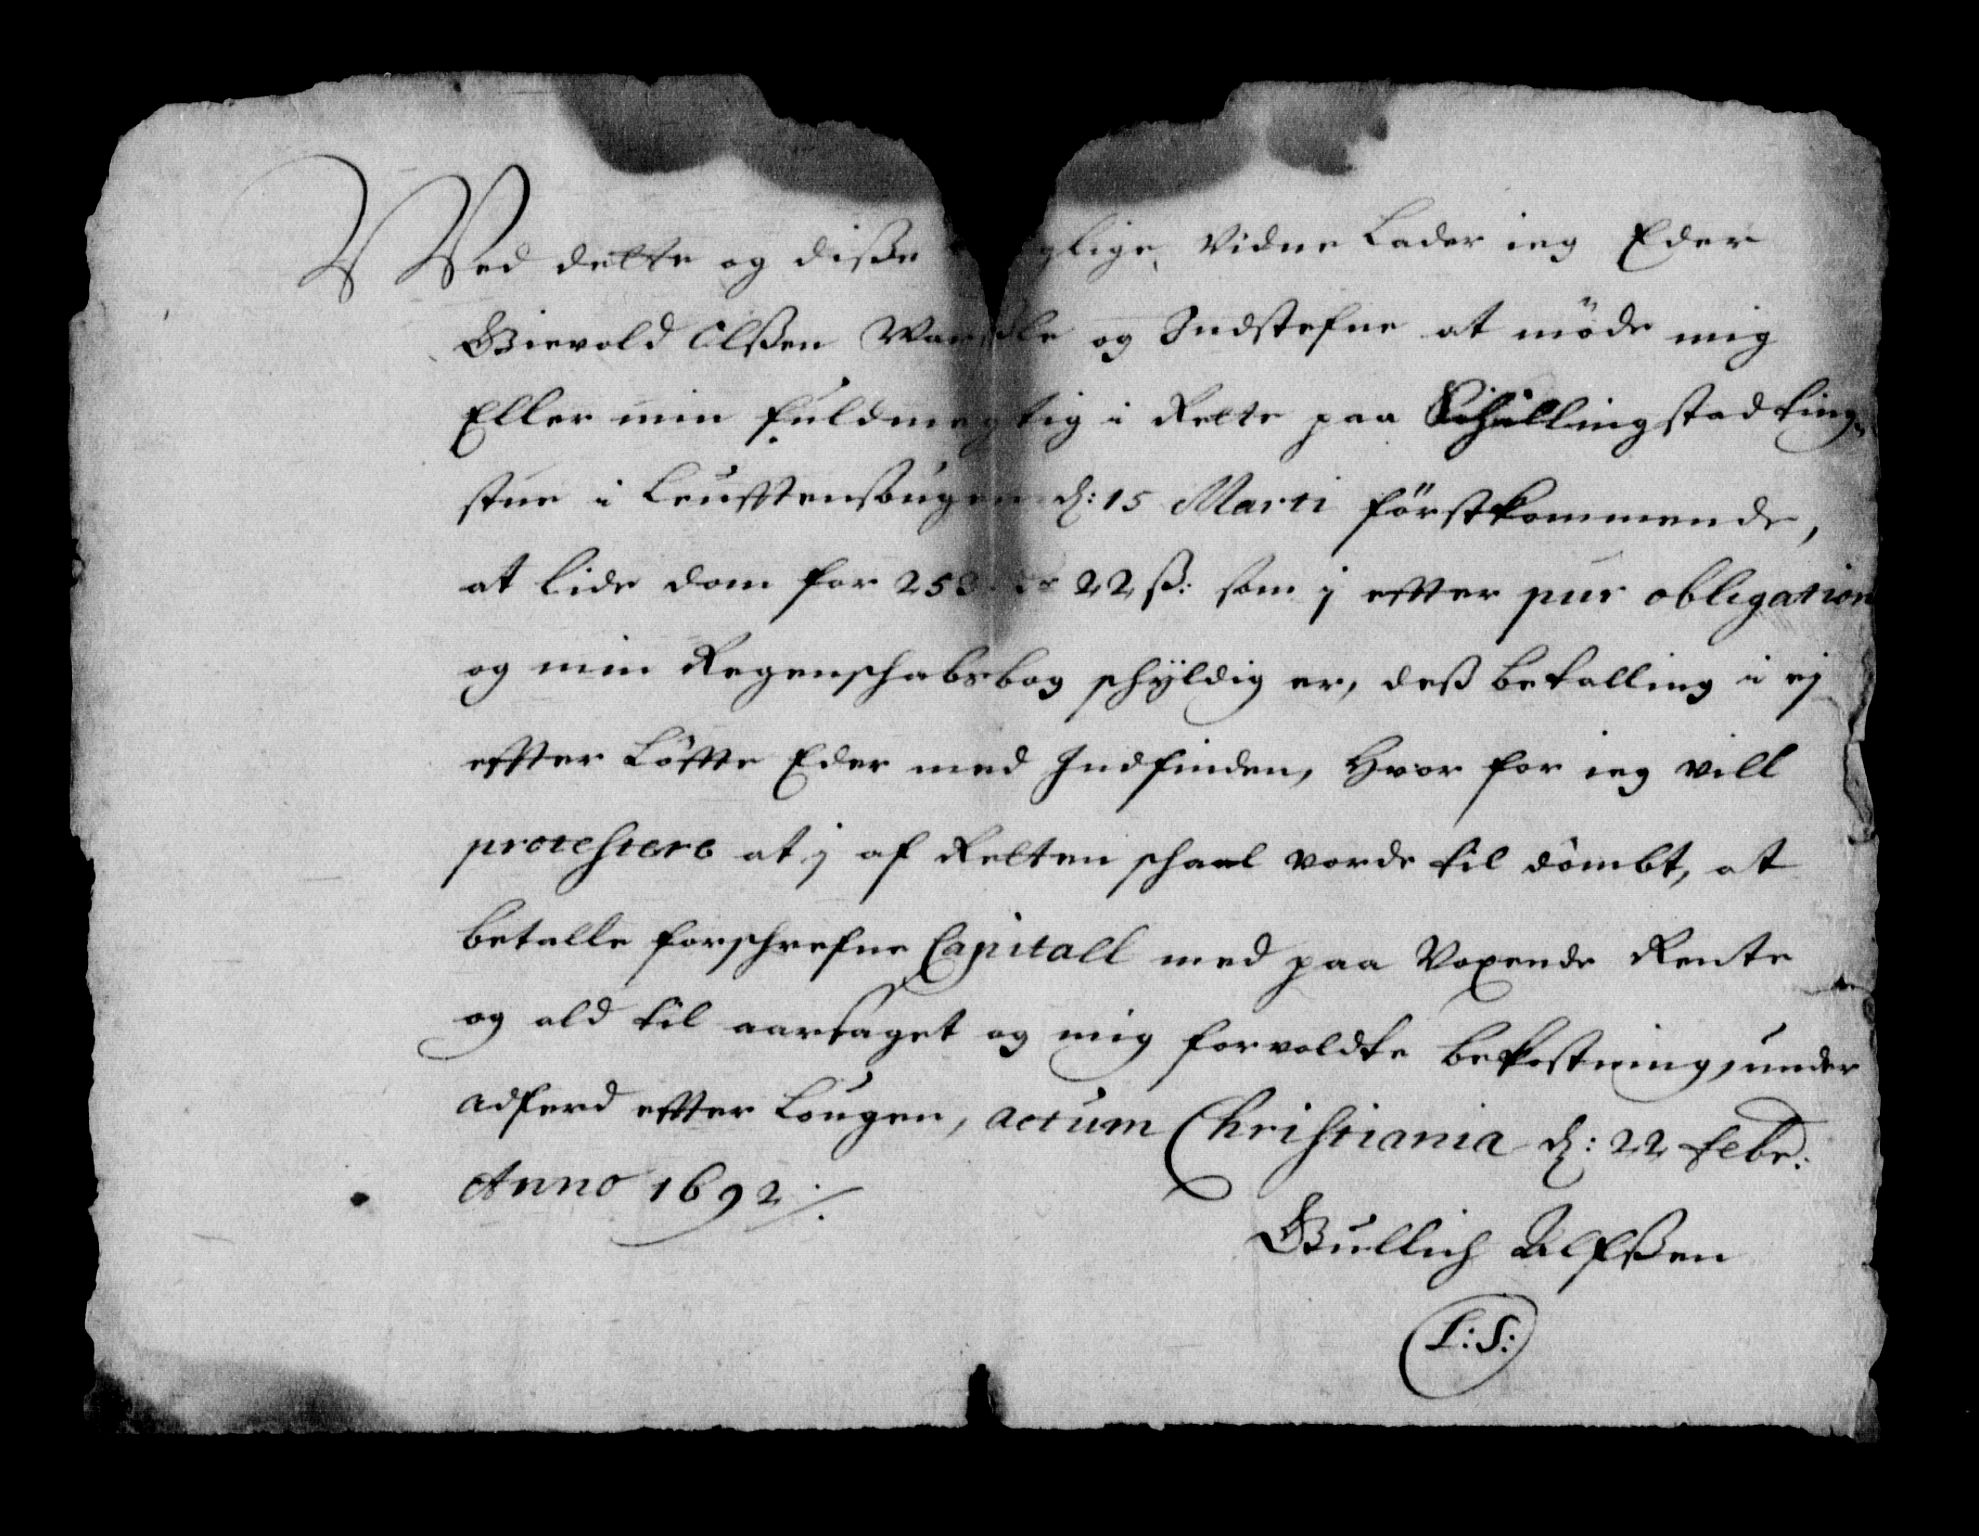 Wed dette og disße glige Vidne Lader ieg Eder
Gievold Olßen og Indstefne at møde mig
Eller min fuldmegtig i Rette paa Schillingstad ting-
stue i d: 15 Marti förstkommende,
at lide dom for 22 ß: som j effter pur obligation
og min Regenschabsbog schÿldig er, deß betalling i ej
effter Löffte Eder med Indfinden, Hvor for ieg vill
protestere at j af Retten schael vorde til dömbt, at
betalle forschrefne Capitall med paa Voxende Rente
og ald til aarsaget og mig forvoldte bekostning, under
adferd effter Lougen, actum Christiania d: 22 febr:
Anno 1692 ⁒
Gullich Alfßen
L:S: